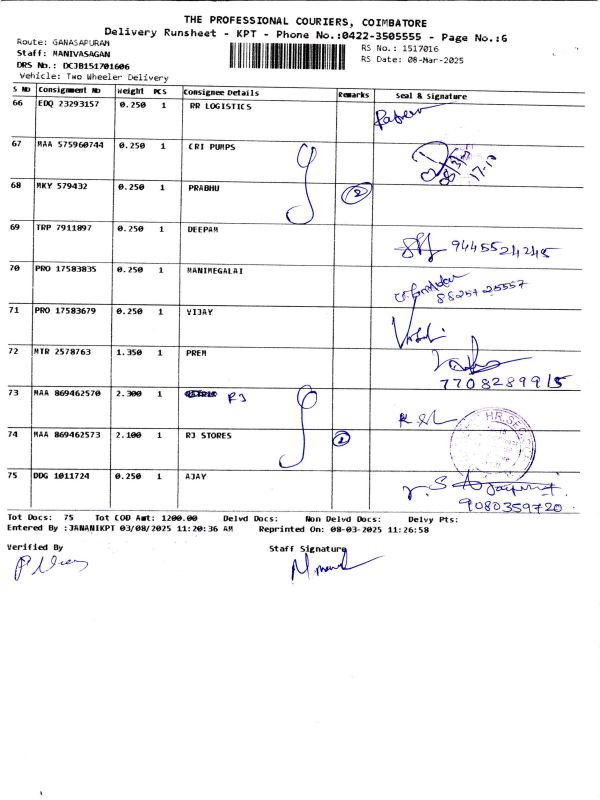 THE PROFESSIONAL COURIERS, COIMBATORE
Delivery Runsheet - KPT - Phone No.:0422-3505555 - Page No.:6
Route: GANASAPURAM
RS No.: 1517016
Staff: MANIVASAGAN
RS Date: 08-Mar-2025
DRS No.: DCJB151701606
Vehicle: Two Wheeler Delivery
S No Consignment No Weight PCS Consignee Details Remarks Seal & Signature
66 EDQ 23293157 0.250 1 RR LOGISTICS
67 MAA 575960744 0.250 1 CRI PUMPS
17-10
68 MKY 579432 0.250 1 PRABHU 2
69 TRP 7911897 0.250 1 DEEPAM
9445524245
70 PRO 17583835 0.250 1 MANIMEGALAI
8825725557
71 PRO 17583679 0.250 1 VIJAY
72 MTR 2578763 1.350 1 PREM
7708289915
73 MAA 869462570 2.300 1 RJ
HR.SEC
74 MAA 869462573 2.100 1 RJ STORES 2
75 DDG 1011724 0.250 1 AJAY
9080359720
Tot Docs: 75 Tot COD Amt: 1200.00 Delvd Docs: Non Delvd Docs: Delvy Pts:
Entered By :JANANIKPT 03/08/2025 11:20:36 AM Reprinted On: 08-03-2025 11:26:58
Verified By Staff Signature